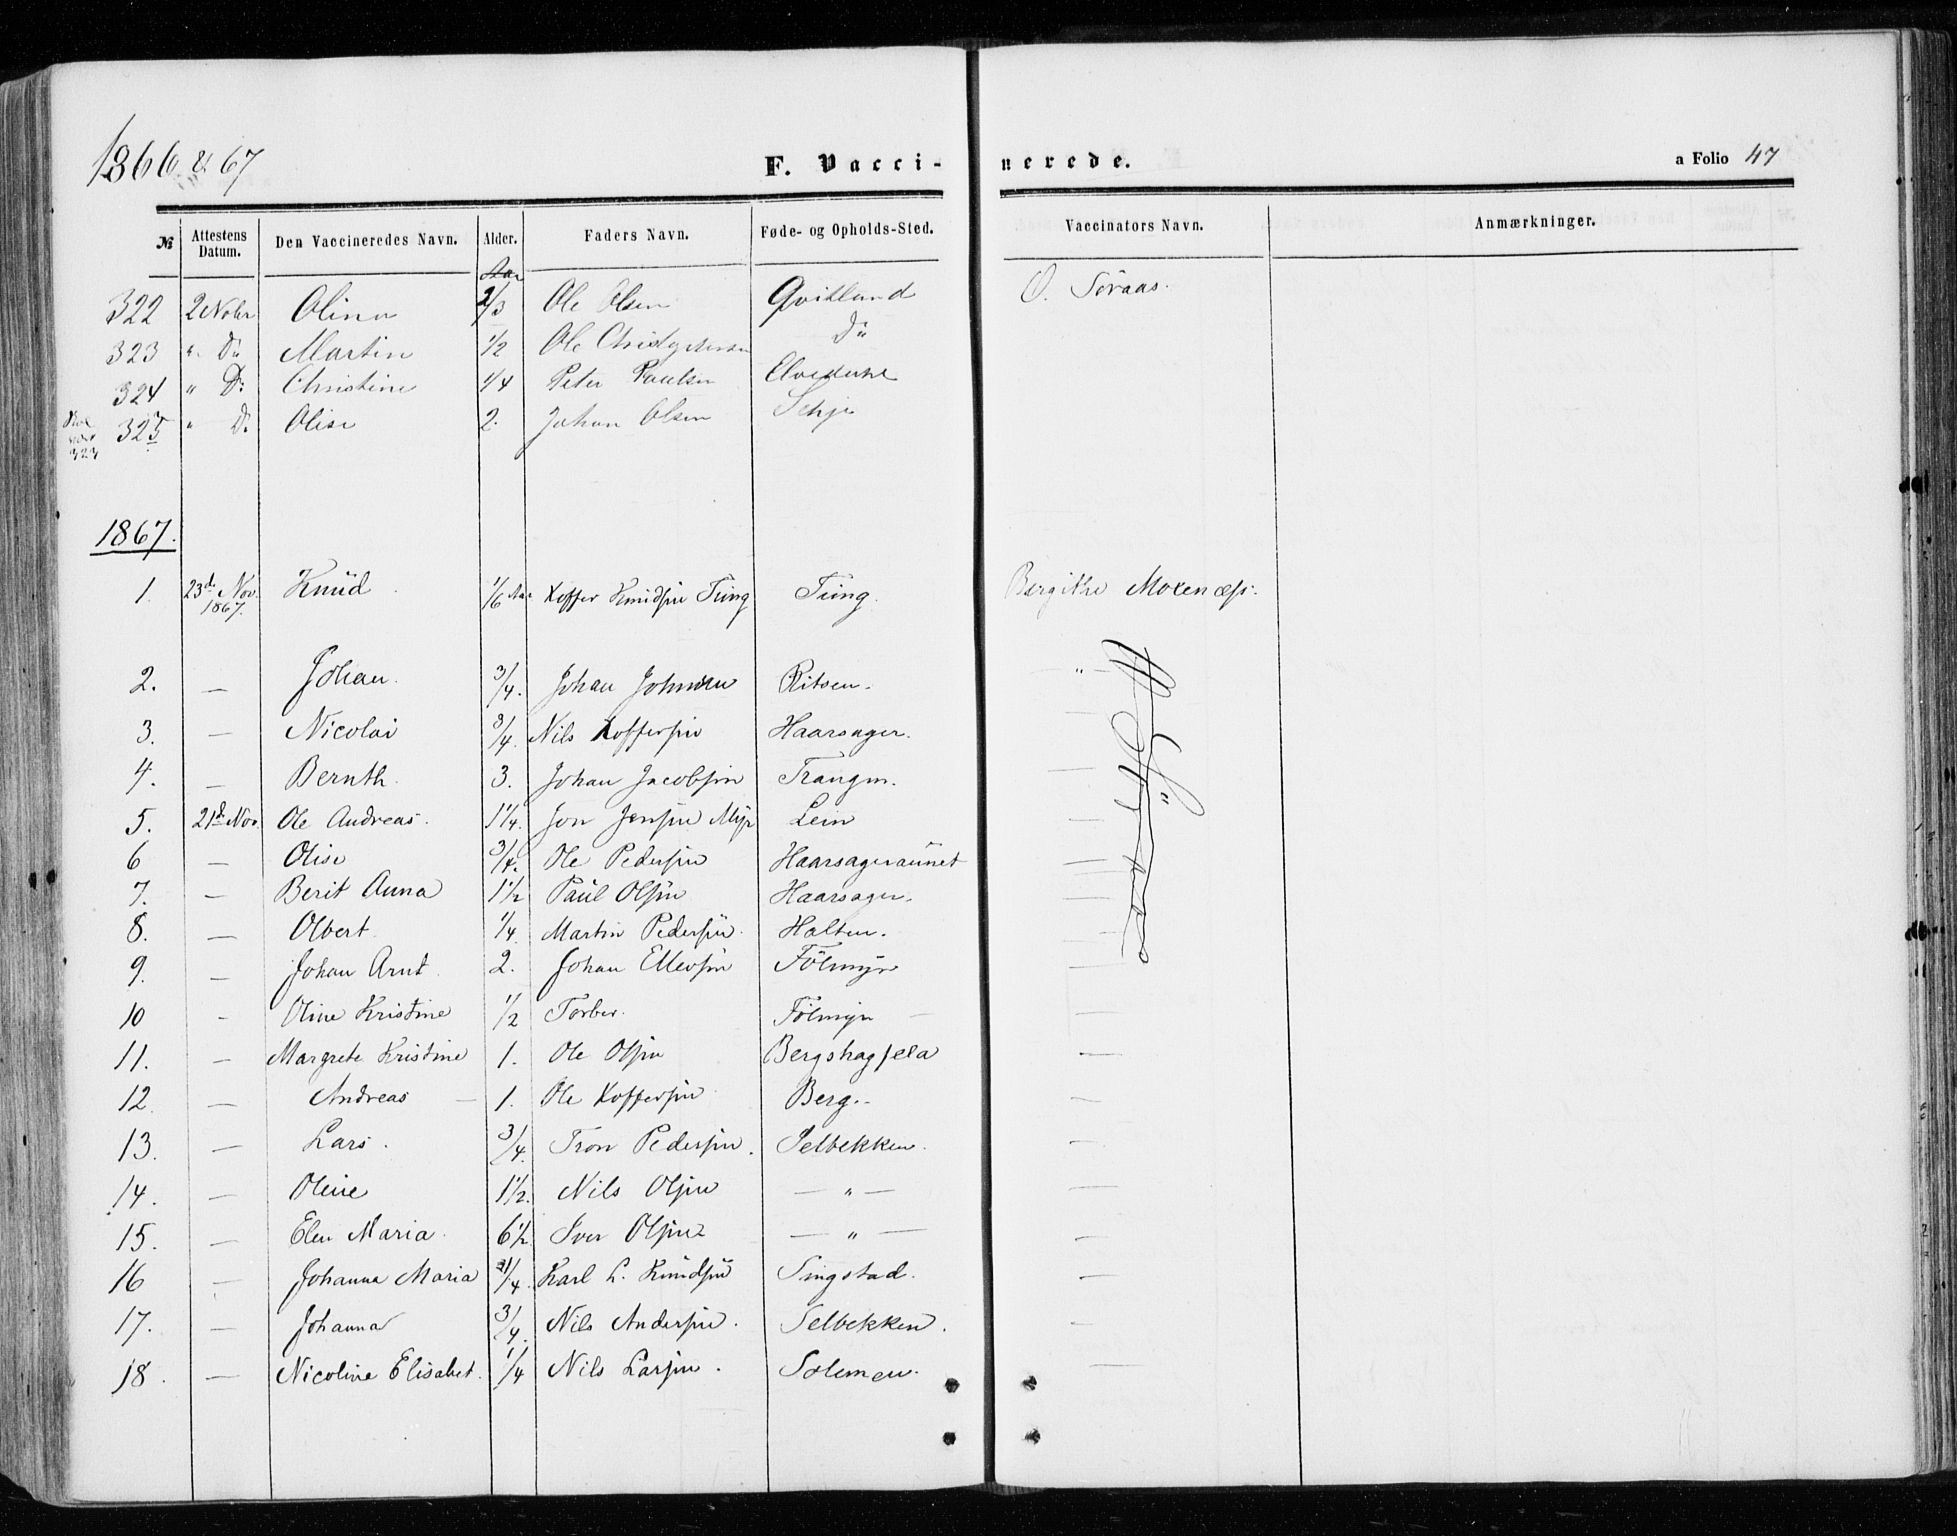 1866 & 67 F. Vaccinerede. a Folio 47
№ Attestens Datum. Den Vaccineredes Navn. Alder. Faders Navn. Føde- og Opholds-Sted. Vaccinators Navn. Anmærkninger.
Aar
322 2 Nobr Olina 2/3 Ole Olsen Qvikland O. Søraas.
323 " Do Martin 1/2 Ole Do
324 " Do Christine 1/4 Peter Paulsen
325 " Do Olise 2. Johan Olsen Sehje
323
1867.
1. 23d Nov. 1867. Knud 1/6 Aar Koffer Knudsen Tung Tung. Bergithe Moxenæss.
2. — Johan. 3/4. Johan Johnsen Ritsen. — " —
3. — Nicolai 3/4. Nils Koffersen Haarsager.
4. — Bernth. 3. Johan Jacobsen Trangm. —
5. 21d Nov. Ole Andreas. 1 1/4. Jon Jensen Myr Lein —
6 — Olise 3/4. Ole Pedersen Haarsageraunet —
7. — Berit Anna 1 1/2 Paul Olsen Haarsager. —
8. — Olbert 1/4. Martin Pedersen. Halten. —
9. — Johan Arnt. 2. Johan Ellevsen Fölmyr —
10 - Oline Kristine 1/2 Torber. Fölmyr — —
11. — Margrete Kristine 1. Ole Olsen Bergshagjela —
12. — Andreas — 1. Ole Koffersen Berg. —
13. — Lars. 3/4. Tron Pedersen. Selbekken. —
14. — Oline 1 1/2. Nils Olsen — " — —
15. — Elen Maria. 6 1/2. Iver Olsen — " — —
16 — Johanna Maria 1/4. Karl L. Knudsen Singstad. —
17. — Johanna 3/4. Nils Andersen. Selbekken. —
18. — Nicoline Elisabet. 1/4 Nils Larsen. Solemen. —